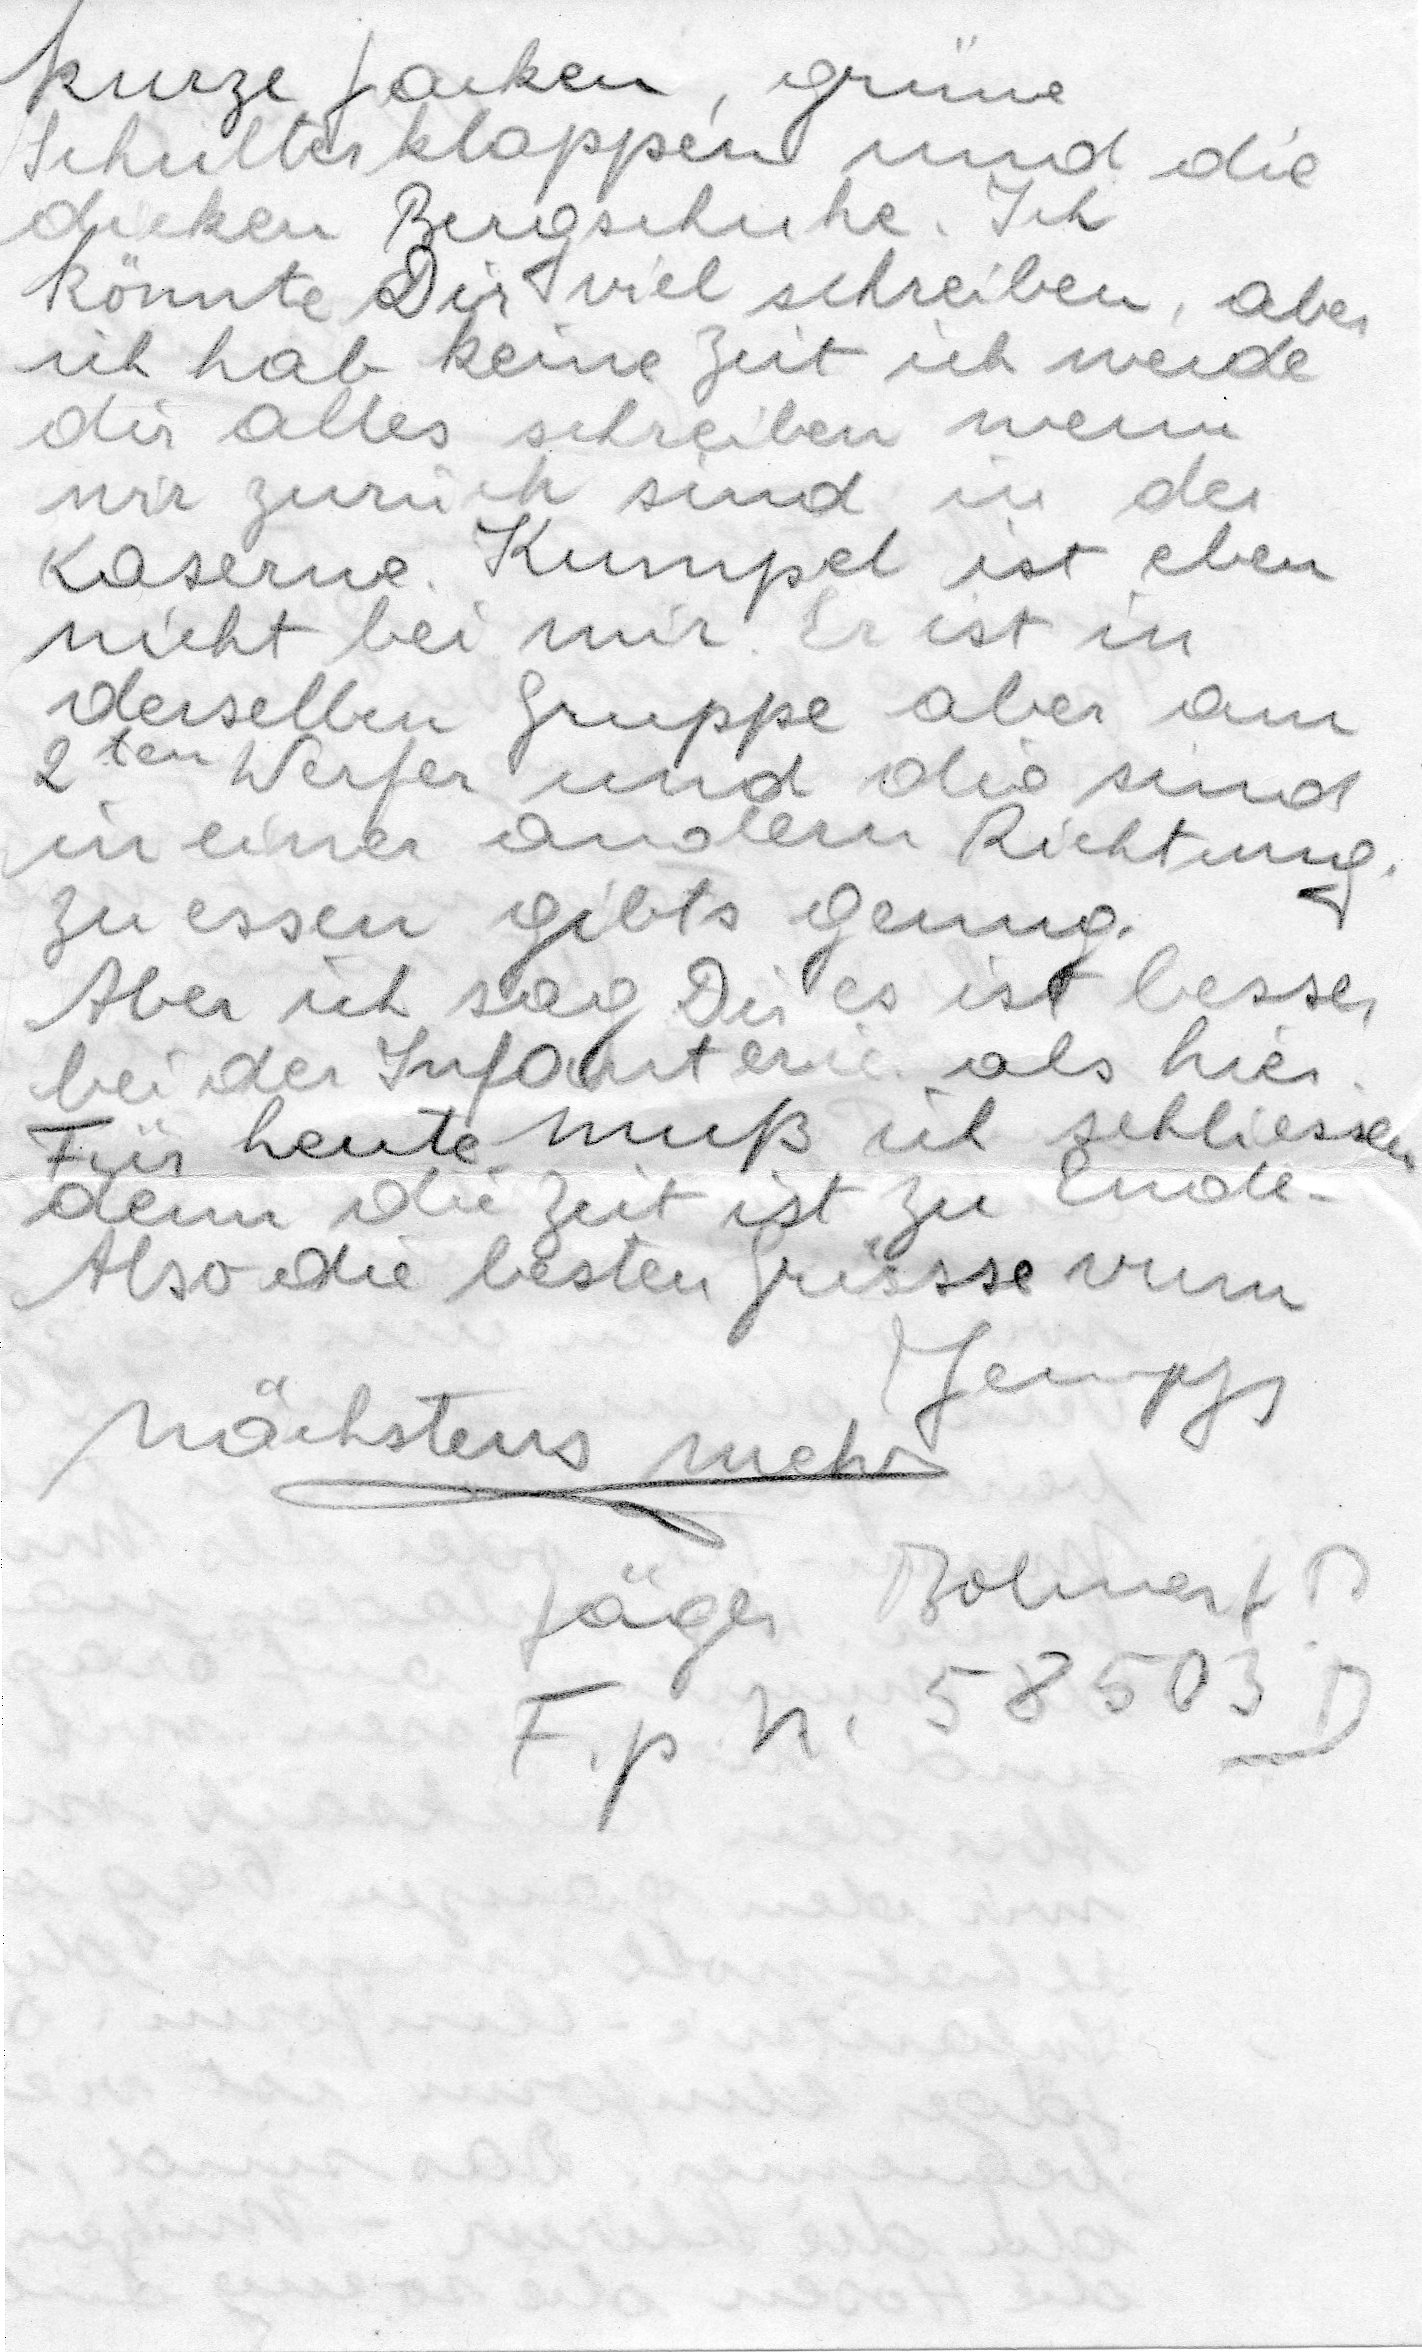 kurze Jacken, grüne
Schulterklappen und die
dicken Bergschuhe. Ich
könnte Dir viel schreiben, aber
ich hab keine Zeit ich werde
dir alles schreiben wenn
wir zurück sind in der
Kaserne. Kumpel ist eben
nicht bei mir. Er ist in
derselben Gruppe aber am
2ten Werfer und die sind
in einer andern Richtung.
Zu essen gibts genug.
Aber ich sag Dir es ist besser
bei der Infanterie als hier.
Für heute muß ich schliessen
denn die Zeit ist zu Ende-
Also die besten Grüsse vum
nächstens mehr
Jäger
F.p.N. 58503 D